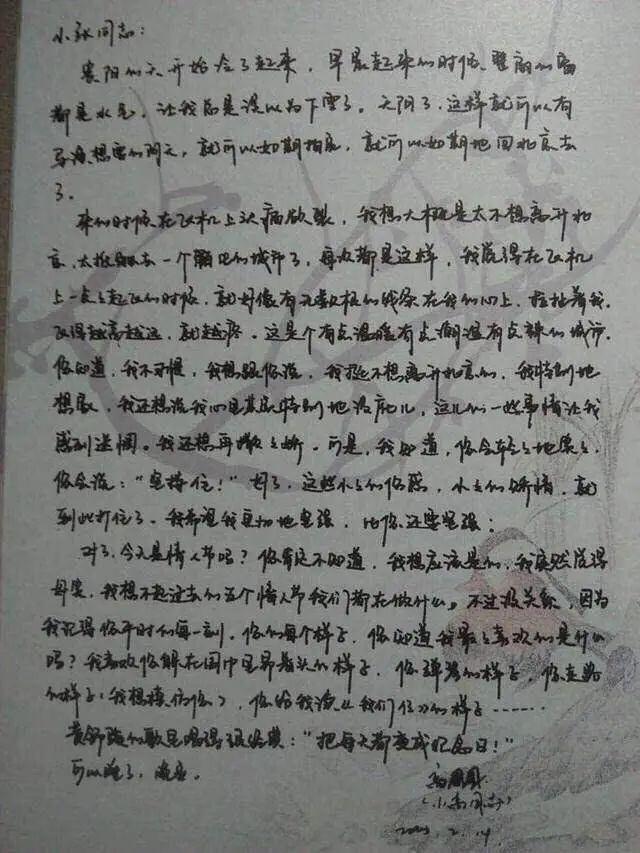 小张同志：
襄阳的天开始冷了起来，早晨起来的时候、整扇的窗
都是水气，让我总是误以为下雪了。天阴了，这样就可以有
导演想要的阴天，就可以如期拍摄，就可以如期地回北京去
了。
来的时候在飞机上头痛欲裂，我想大概是太不想离开北
京、去一个陌生的城市了，每次都是这样，我觉得在飞机
上一点点起飞的时候，就好像有无数根的线条在我的心上，拉扯着我，
飞得越高越远，就越疼。这是个有点温暖有点潮湿有点辣的城市。
你知道，我不习惯，我想跟你说，我挺不想离开北京的，我特别地
想家，我还想说我心里其实特别地没底儿，这儿的一些事情让我
感到迷惘。我还想再撒撒娇。可是，我知道，你会轻轻地震震，
你会说："坚持住！"对了，这些小小的伤感，小小的矫情，就
到此打住了。我希望我更加地坚强，比你还要坚强；
对了，今天是情人节吗？你肯定不知道，我想应该是的，我突然觉得
我想不起过去的五个情人节我们都在做什么。不过没关系，因为
我记得你平时的每一刻，你的每个样子，你知道我最喜欢的是什么
吗？我喜欢你躲在围巾里界着头的样子，你弹琴的样子，你走路
的样子（我想模仿你），你给我读《我们仨》的样子……
黄舒骏的歌里唱得很好："把每天都变成纪念日！"
可以睡了，晚安。
（小 同志）
2.14